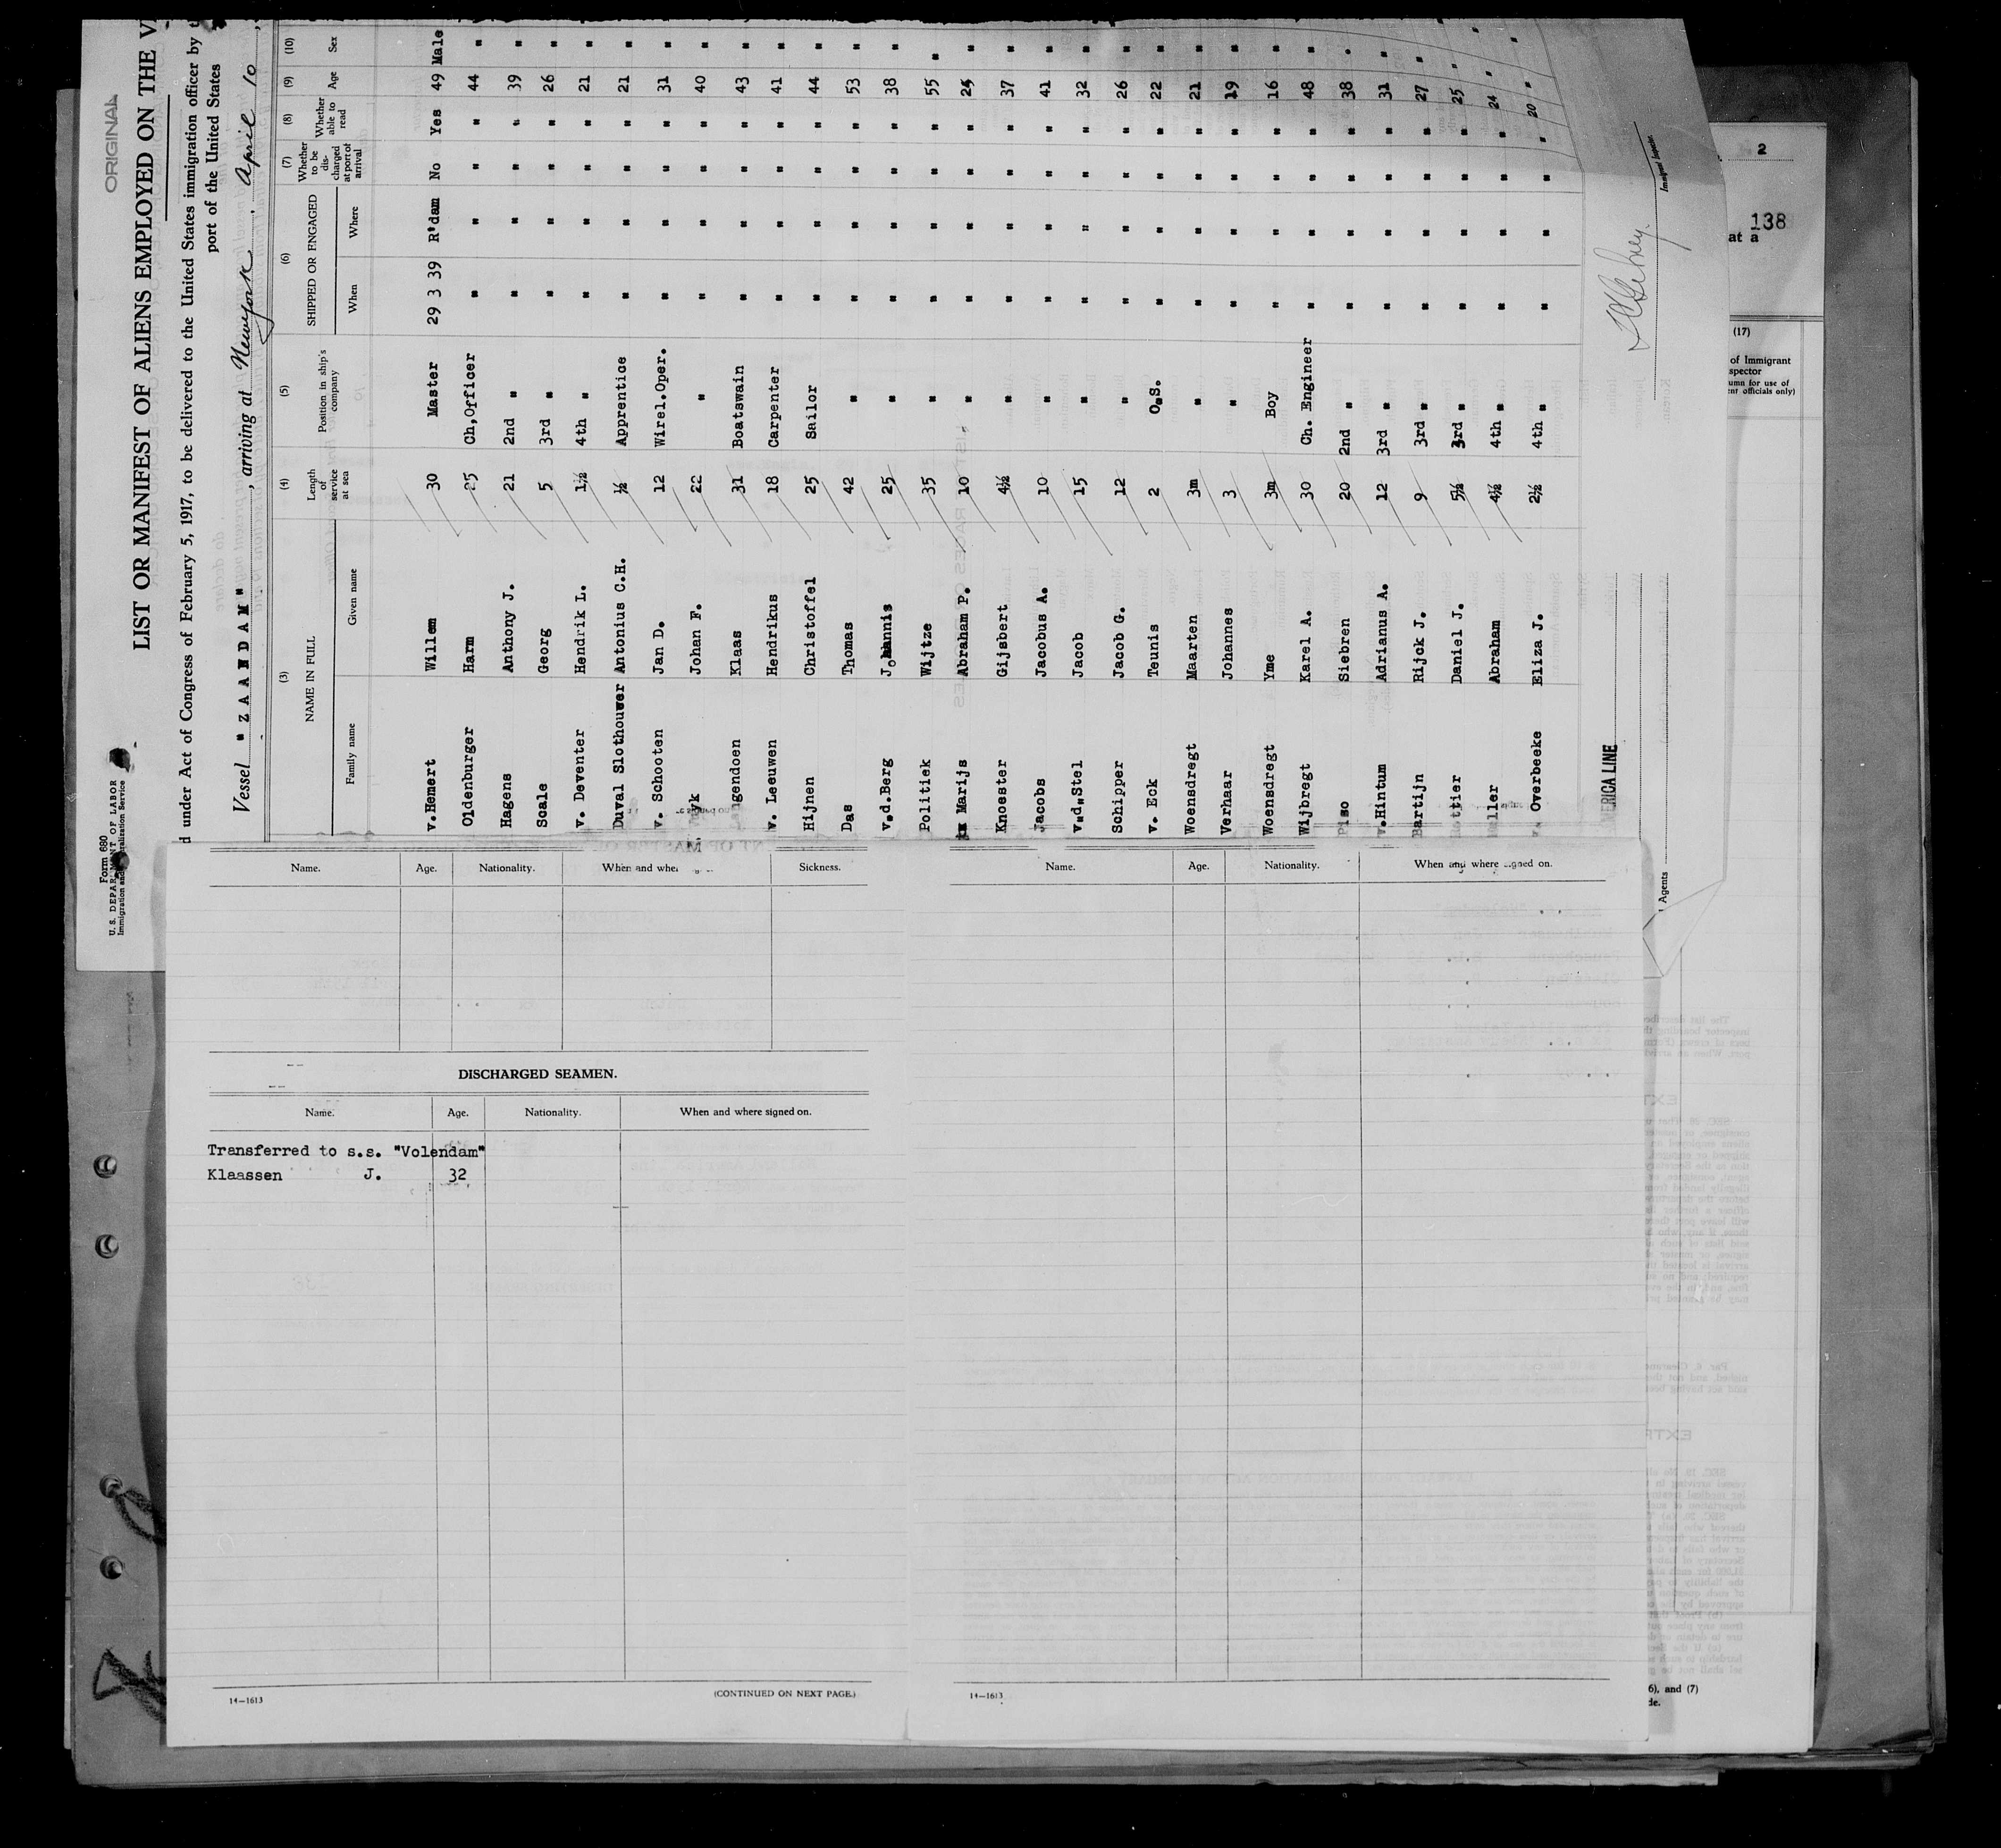 ORIGINAL
Form 680
U. S. DEPARTMENT OF LABOR
LIST OR MANIFEST OF ALIENS EMPLOYED ON THE
d under Act of Congress of February 5, 1917, to be delivered to the United States immigration officer by
port of the United States
Vessel "ZAANDAM", arriving at Newyork, April 10
(3) (4) (5) (6) (7) (8) (9) (10)
NAME IN FULL Length of service at sea Position in ship's company SHIPPED OR ENGAGED Whether to be discharged at port of arrival Whether able to read Age Sex
Family name Given name When Where
v.Hemert Willem 30 Master 29 3 39 R'dam No Yes 49 Male
Oldenburger Harm 25 Ch,Officer " " " " 44 "
Hagens Anthony J. 21 2nd " " " " " 39 "
Scale Georg 5 3rd " " " " " 26 "
v. Deventer Hendrik L. 1½ 4th " " " " " 21 "
Duval Slothouwer Antonius C.H. ½ Apprentice " " " " 21 "
v. Schooten Jan D. 12 Wirel.Oper. " " " " 31 "
Johan F. 22 " " " " " 40 "
ngendoen Klaas 31 Boatswain " " " " 43 "
v. Leeuwen Hendrikus 18 Carpenter " " " " 41 "
Hijnen Christoffel 25 Sailor " " " " 44 "
Das Thomas 42 " " " " " 53 "
v.d.Berg Johannis 25 " " " " " 38 "
Politiek Wijtze 35 " " " " " 55 "
Marijs Abraham P. 10 " " " " " 24 "
Knoester Gijsbert 4½ " " " " " 37 "
Jacobs Jacobus A. 10 " " " " " 41 "
v.d.Stel Jacob 15 " " " " " 32 "
Schipper Jacob G. 12 " " " " " 26 "
v. Eck Teunis 2 O.S. " " " " 22 "
Woensdregt Maarten 3m " " " " " 21 "
Verhaar Johannes 3 " " " " " 19 "
Woensdregt Yme 3m Boy " " " " 16 "
Wijbregt Karel A. 30 Ch. Engineer " " " " 48 "
Piso Siebren 20 2nd " " " " " 38 "
v.Hintum Adrianus A. 12 3rd " " " " " 31 "
Bartijn Rijck J. 9 3rd " " " " " 27 "
ottier Daniel J. 5½ 3rd " " " " " 25 "
eller Abraham 4½ 4th " " " " " 24 "
v. Overbeeke Eliza J. 2½ 4th " " " " " 20 "
ERICA LINE
Agents
Immigrant Inspector.
2
138
at a
(17)
of Immigrant
spector
umn for use of
nt officials only)
6), and (7)
de.
Name. Age. Nationality. When and whe Sickness.
DISCHARGED SEAMEN.
Name. Age. Nationality. When and where signed on.
Transferred to s.s. "Volendam"
Klaassen J. 32
14—1613 (CONTINUED ON NEXT PAGE.)
Name. Age. Nationality. When and where signed on.
14—1613